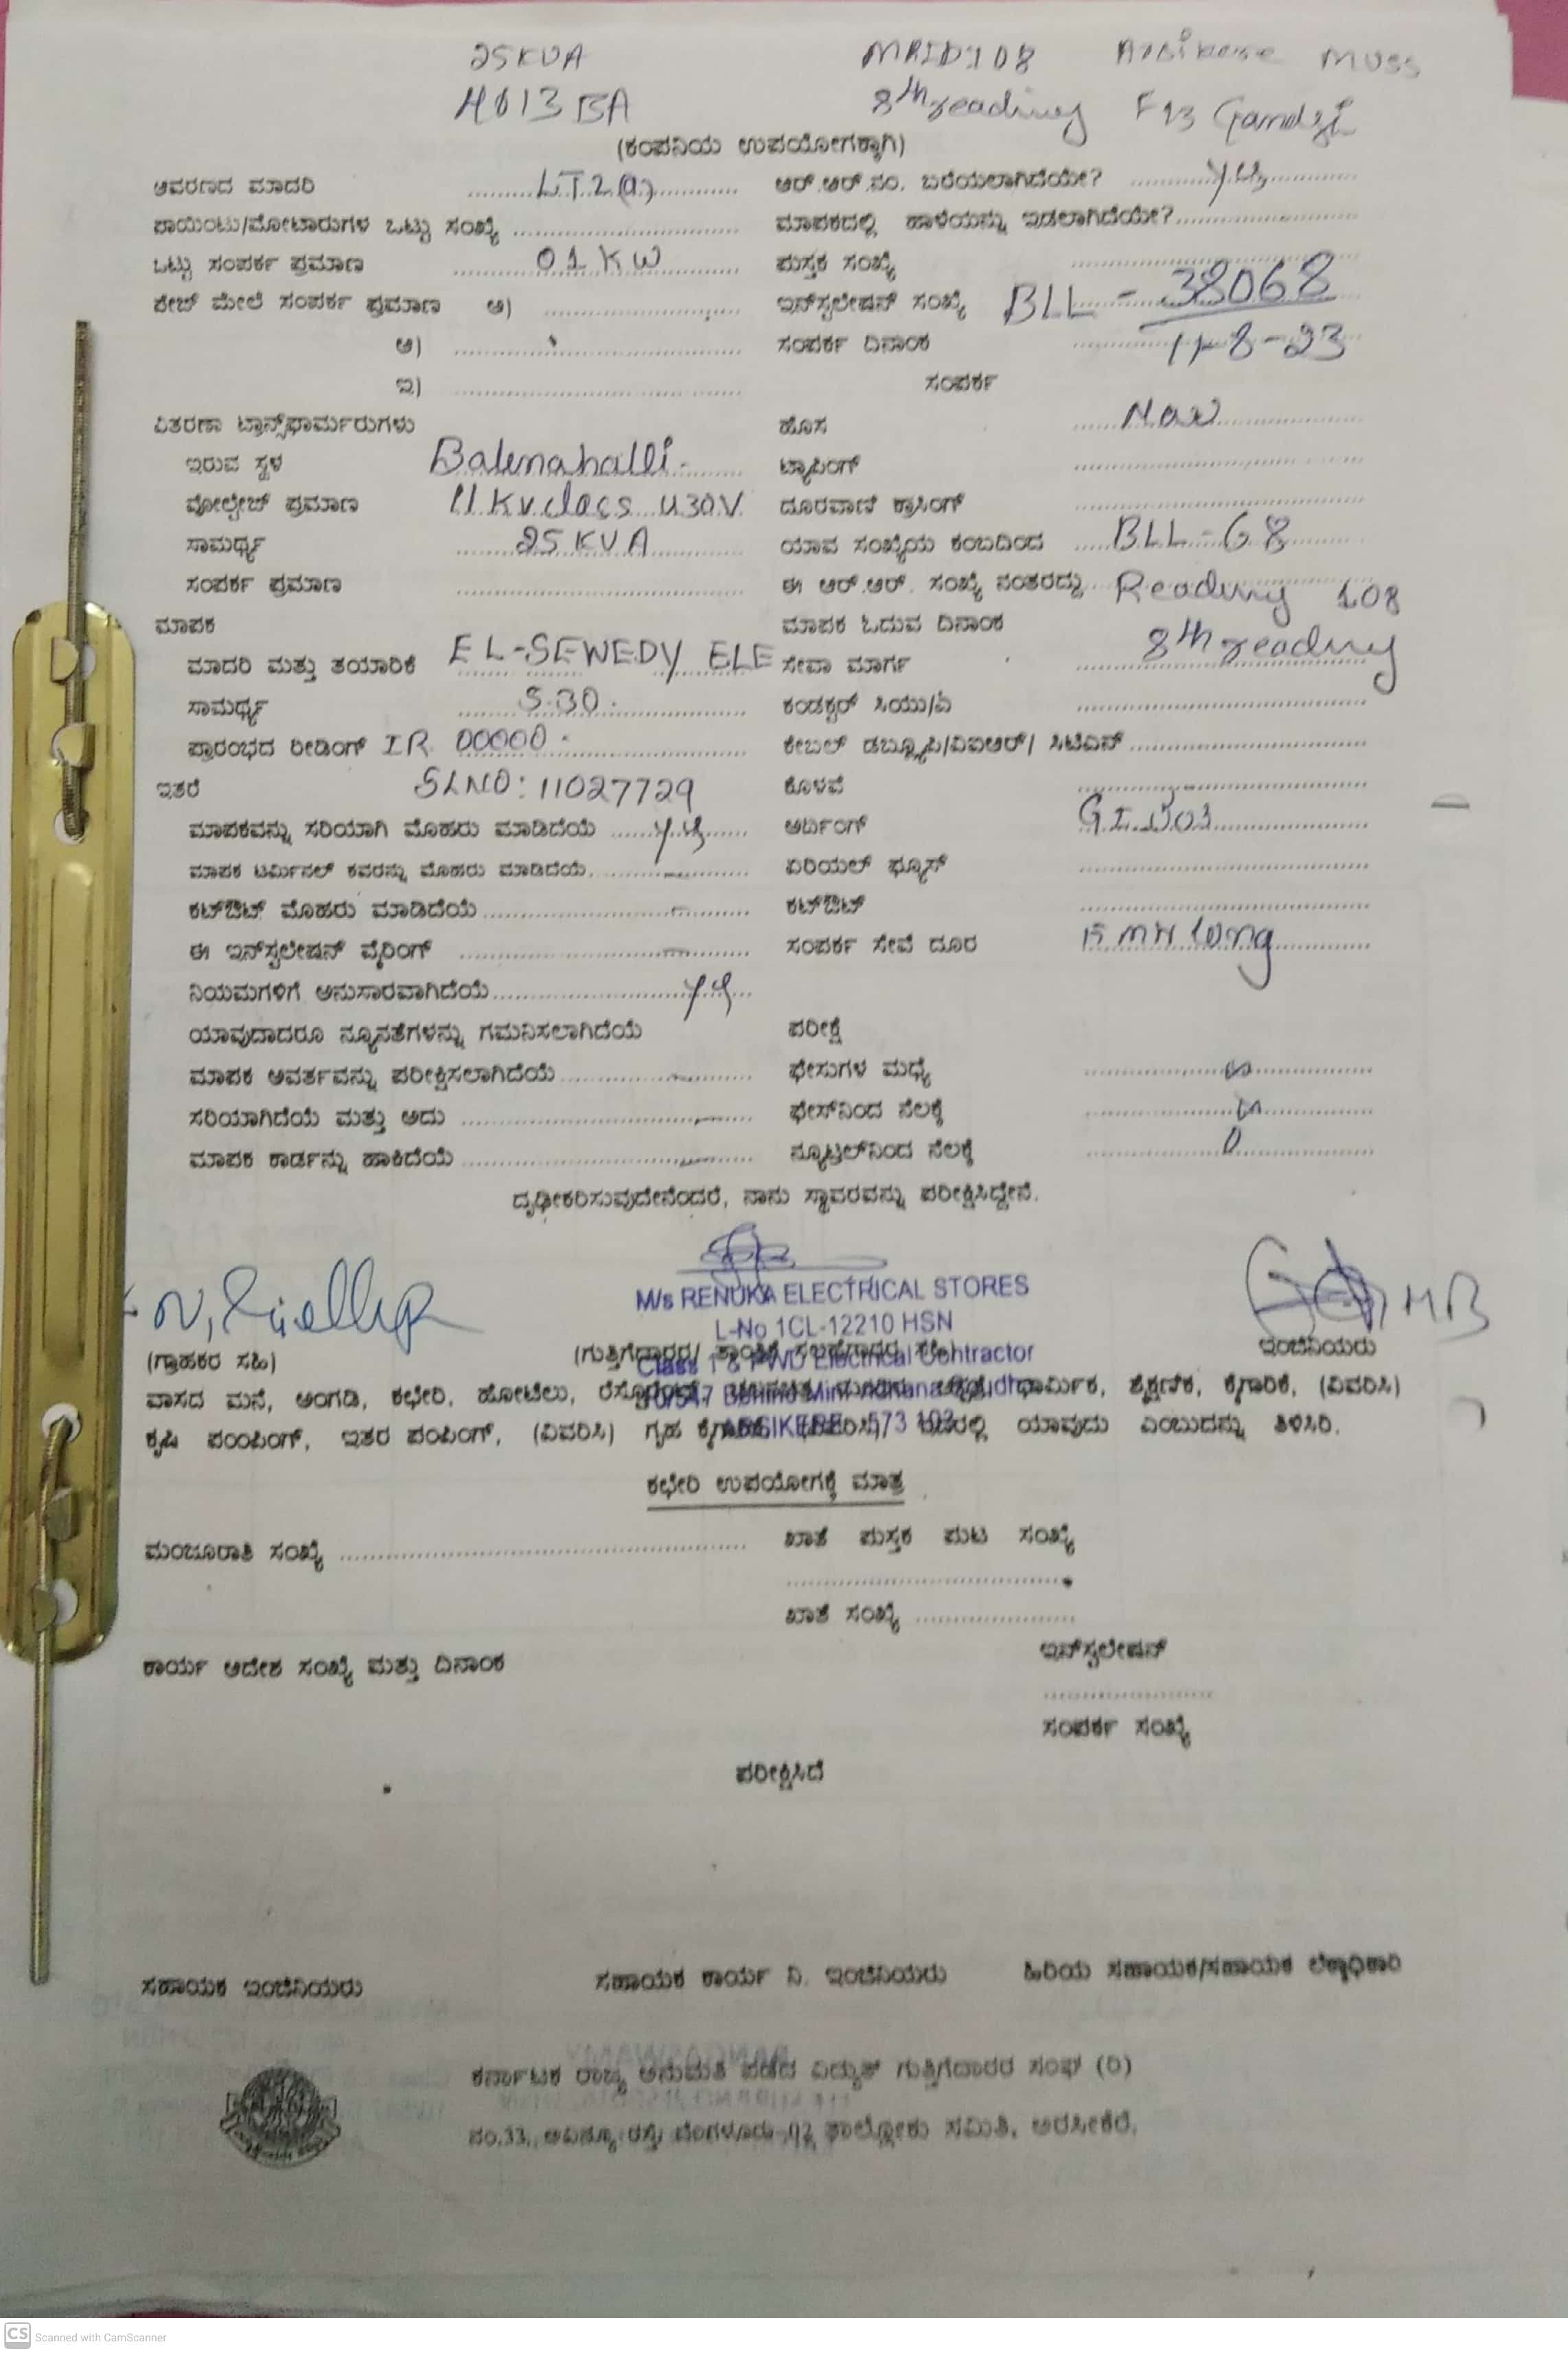 25KVA MRID108 Arsikere MUSS
4013BA 8th reading F13 Gandsi
(ಕಂಪನಿಯ ಉಪಯೋಗಕ್ಕಾಗಿ)
ಆವರಣದ ಮಾದರಿ LT2(a) ಆರ್.ಆರ್.ನಂ. ಬರೆಯಲಾಗಿದೆಯೇ?
ಪಾಯಿಂಟು/ಮೋಟಾರುಗಳ ಒಟ್ಟು ಸಂಖ್ಯೆ ಮಾಪಕದಲ್ಲಿ ಹಾಳೆಯನ್ನು ಇಡಲಾಗಿದೆಯೇ?
ಒಟ್ಟು ಸಂಪರ್ಕ ಪ್ರಮಾಣ 01KW ಪುಸ್ತಕ ಸಂಖ್ಯೆ
ಪೇಜ್ ಮೇಲೆ ಸಂಪರ್ಕ ಪ್ರಮಾಣ ಅ) ಇನ್‌ಸ್ಟಲೇಷನ್ ಸಂಖ್ಯೆ BLL - 38068
ಆ) ಸಂಪರ್ಕ ದಿನಾಂಕ 11-8-23
ಇ) ಸಂಪರ್ಕ
ವಿತರಣಾ ಟ್ರಾನ್ಸ್‌ಫಾರ್ಮರುಗಳು ಹೊಸ New
ಇರುವ ಸ್ಥಳ Balenahalli ಟ್ಯಾಪಿಂಗ್
ವೋಲ್ಟೇಜ್ ಪ್ರಮಾಣ 11Kv class 430V ದೂರವಾಣಿ ಕ್ರಾಸಿಂಗ್
ಸಾಮರ್ಥ್ಯ 25KVA ಯಾವ ಸಂಖ್ಯೆಯ ಕಂಬದಿಂದ BLL-68
ಸಂಪರ್ಕ ಪ್ರಮಾಣ ಈ ಆರ್.ಆರ್. ಸಂಖ್ಯೆ ನಂತರದ್ದು Reading 108
ಮಾಪಕ ಮಾಪಕ ಓದುವ ದಿನಾಂಕ 8th reading
ಮಾದರಿ ಮತ್ತು ತಯಾರಿಕೆ EL-SEWEDY ELE ಸೇವಾ ಮಾರ್ಗ
ಸಾಮರ್ಥ್ಯ 5-30 ಕಂಡಕ್ಟರ್ ಸಿಯು/ಎ
ಪ್ರಾರಂಭದ ರೀಡಿಂಗ್ IR 00000 ಕೇಬಲ್ ಡಬ್ಲ್ಯೂಪಿ/ವಿಐಆರ್/ ಸಿಟಿಎಸ್
ಇತರೆ SLNO: 11027729 ಕೊಳವೆ
ಮಾಪಕವನ್ನು ಸರಿಯಾಗಿ ಮೊಹರು ಮಾಡಿದೆಯೆ ಅರ್ಥಿಂಗ್
ಮಾಪಕ ಟರ್ಮಿನಲ್ ಕವರನ್ನು ಮೊಹರು ಮಾಡಿದೆಯೆ. ಏರಿಯಲ್ ಫ್ಯೂಸ್
ಕಟ್‌ಔಟ್ ಮೊಹರು ಮಾಡಿದೆಯೆ ಕಟ್‌ಔಟ್
ಈ ಇನ್‌ಸ್ಟಲೇಷನ್ ವೈರಿಂಗ್ ಸಂಪರ್ಕ ಸೇವೆ ದೂರ
ನಿಯಮಗಳಿಗೆ ಅನುಸಾರವಾಗಿದೆಯೆ
ಯಾವುದಾದರೂ ನ್ಯೂನತೆಗಳನ್ನು ಗಮನಿಸಲಾಗಿದೆಯೆ ಪರೀಕ್ಷೆ
ಮಾಪಕ ಆವರ್ತವನ್ನು ಪರೀಕ್ಷಿಸಲಾಗಿದೆಯೆ ಫೇಸುಗಳ ಮಧ್ಯೆ
ಸರಿಯಾಗಿದೆಯೆ ಮತ್ತು ಅದು ಫೇಸ್‌ನಿಂದ ನೆಲಕ್ಕೆ
ಮಾಪಕ ಕಾರ್ಡನ್ನು ಹಾಕಿದೆಯೆ ನ್ಯೂಟ್ರಲ್‌ನಿಂದ ನೆಲಕ್ಕೆ 0
ದೃಢೀಕರಿಸುವುದೇನೆಂದರೆ, ನಾನು ಸ್ಥಾವರವನ್ನು ಪರೀಕ್ಷಿಸಿದ್ದೇನೆ.
M/s RENUKA ELECTRICAL STORES
L-No 1CL-12210 HSN
(ಗ್ರಾಹಕರ ಸಹಿ) ಇಂಜಿನಿಯರು
Class 1 & PWD Electrical Contractor
ವಾಸದ ಮನೆ, ಅಂಗಡಿ, ಕಛೇರಿ, ಹೋಟೆಲು, ಧಾರ್ಮಿಕ, ಶೈಕ್ಷಣಿಕ, ಕೈಗಾರಿಕೆ, (ವಿವರಿಸಿ)
ARSIKERE - 573 103
ಕೃಷಿ ಪಂಪಿಂಗ್, ಇತರ ಪಂಪಿಂಗ್, (ವಿವರಿಸಿ) ಗೃಹ ಯಾವುದು ಎಂಬುದನ್ನು ತಿಳಿಸಿರಿ.
ಕಛೇರಿ ಉಪಯೋಗಕ್ಕೆ ಮಾತ್ರ
ಮಂಜೂರಾತಿ ಸಂಖ್ಯೆ ಖಾತೆ ಪುಸ್ತಕ ಪುಟ ಸಂಖ್ಯೆ
ಖಾತೆ ಸಂಖ್ಯೆ
ಇನ್‌ಸ್ಟಲೇಷನ್
ಕಾರ್ಯ ಆದೇಶ ಸಂಖ್ಯೆ ಮತ್ತು ದಿನಾಂಕ
ಸಂಪರ್ಕ ಸಂಖ್ಯೆ
ಪರೀಕ್ಷಿಸಿದೆ
ಸಹಾಯಕ ಇಂಜಿನಿಯರು ಸಹಾಯಕ ಕಾರ್ಯ ನಿ. ಇಂಜಿನಿಯರು ಹಿರಿಯ ಸಹಾಯಕ/ಸಹಾಯಕ ಲೆಕ್ಕಾಧಿಕಾರಿ
ಕರ್ನಾಟಕ ರಾಜ್ಯ ಅನುಮತಿ ಪಡೆದ ವಿದ್ಯುತ್ ಗುತ್ತಿಗೆದಾರರ ಸಂಘ (ರಿ)
ನಂ.33, ಅವಿನ್ಯೂ ರಸ್ತೆ ಬೆಂಗಳೂರು ತಾಲ್ಲೂಕು ಸಮಿತಿ, ಅರಸೀಕೆರೆ.
CS Scanned with CamScanner